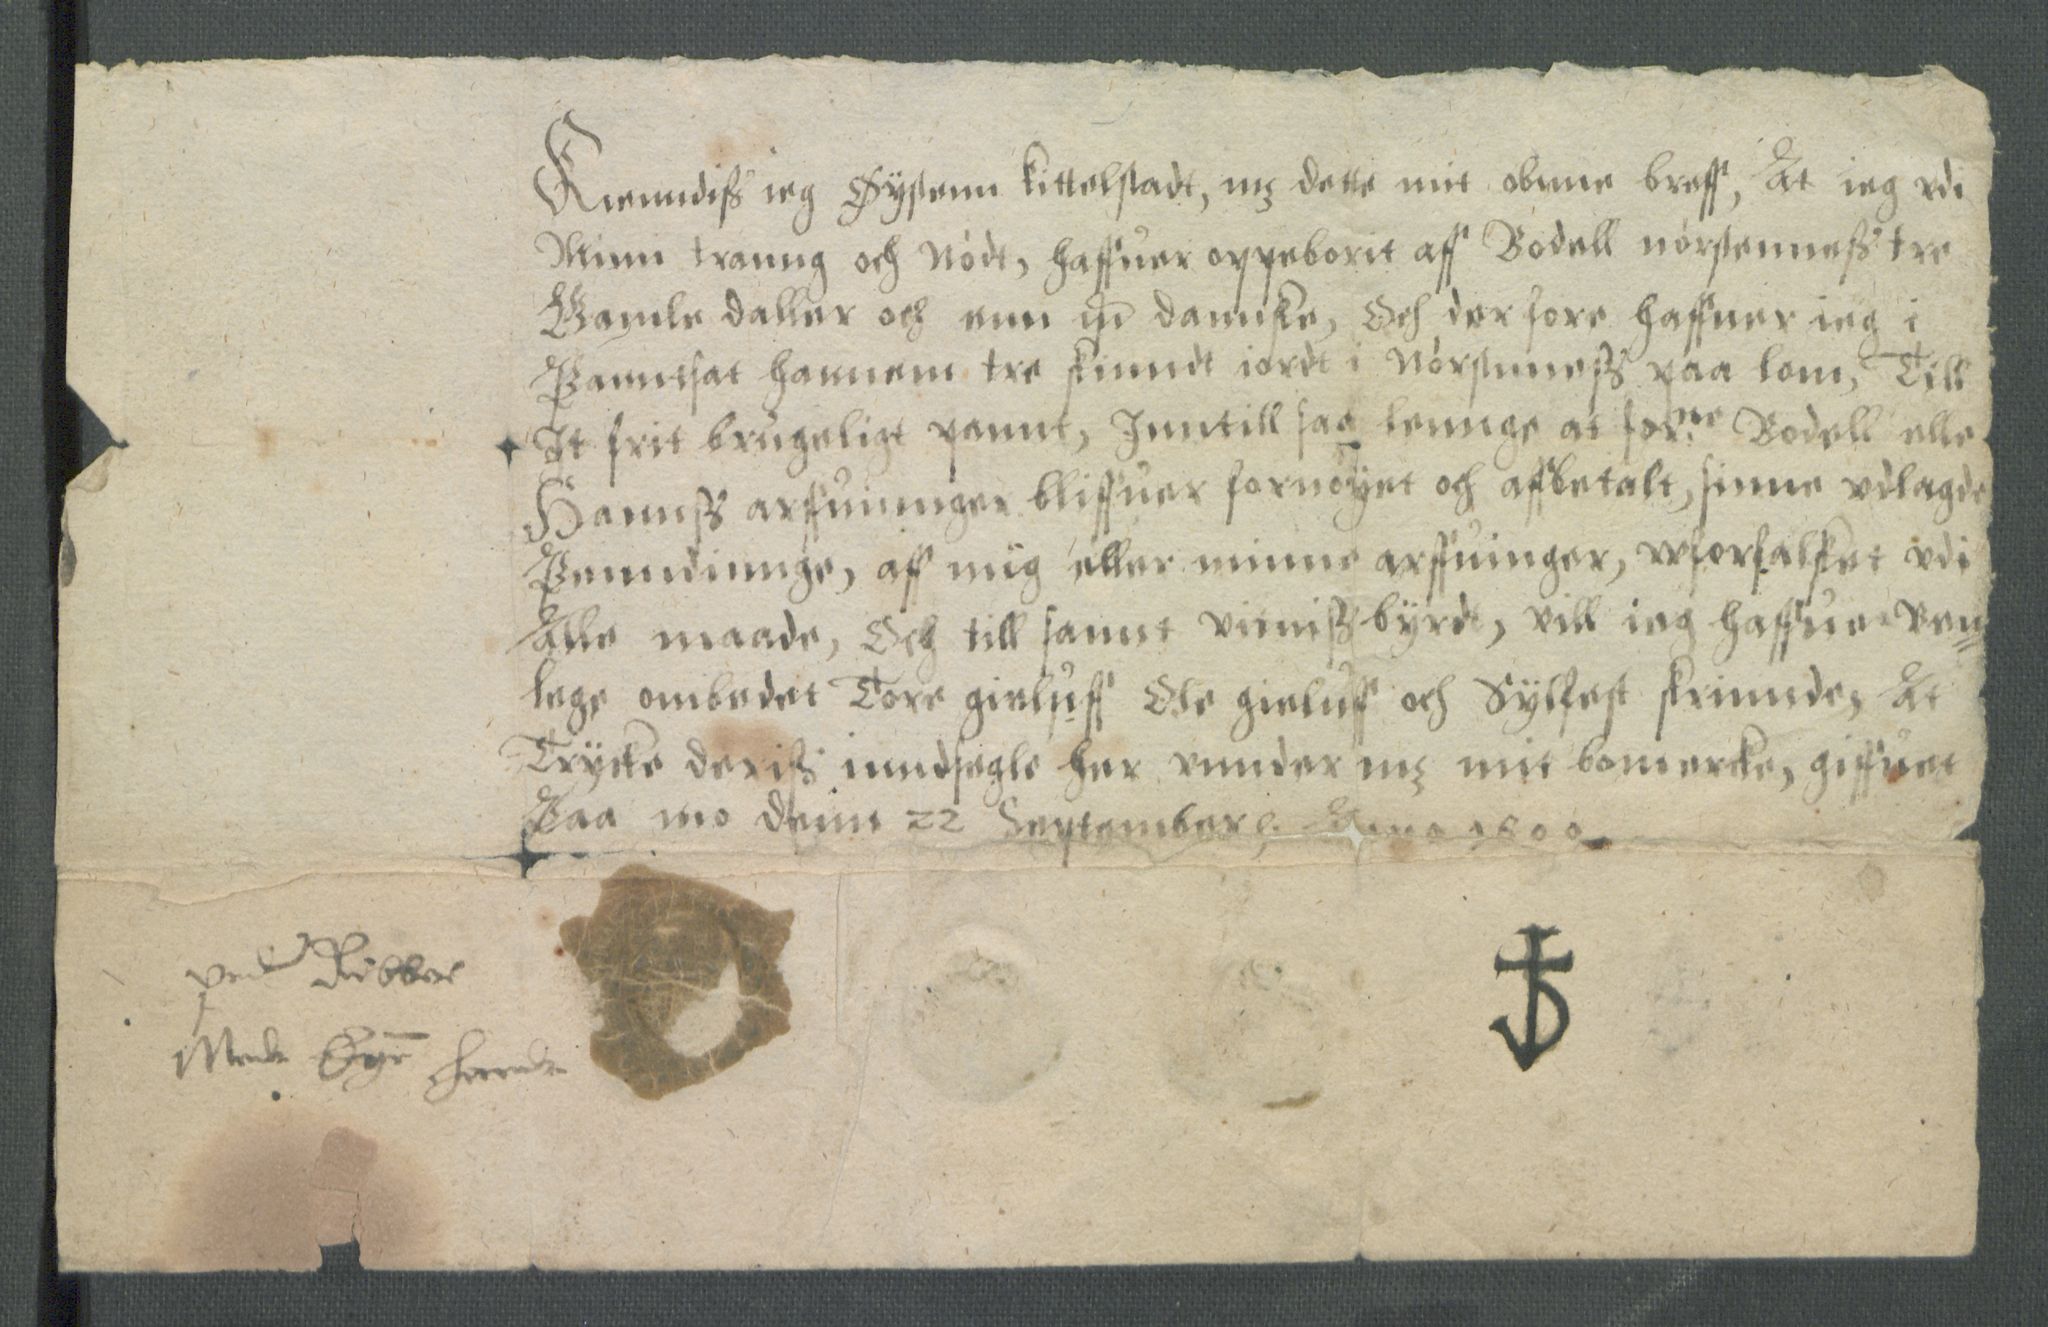 Kienndiß ieg Øystenn kittelstadt, mꝫ dette mit obnne breff, At ieg vdi
Minn tranng och Nødt, haffuer oppeborit aff Bodell nørstenneß tre
Gamle daller och enn m̃ dannske, Och der fore haffuer ieg i
Panntsat hannem tre skinndt iordt i Nørstnneß paa lom, Till
It frit brugeligt pannt, Inntill saa lennge at forne Bodell elle
Hannß arffuinnger bliffuer fornøyet och affbetalt, sinne vdlagde
Penndinnge, aff mig eller minne arffuinger, wforfalsket vdi
Alle maade, Och till sannt vitniß byrdt, vill ieg haffue Ven=
lege ombedet Tore gieluff Ole gieluff och Sylfest skrinnde, At
Trycke deriß inndsegle her vnnder mꝫ mit bomercke, giffuet
Paa mo denn 22 Septembers Anno 1600
Peder Ribber
Medt Egn Haandt